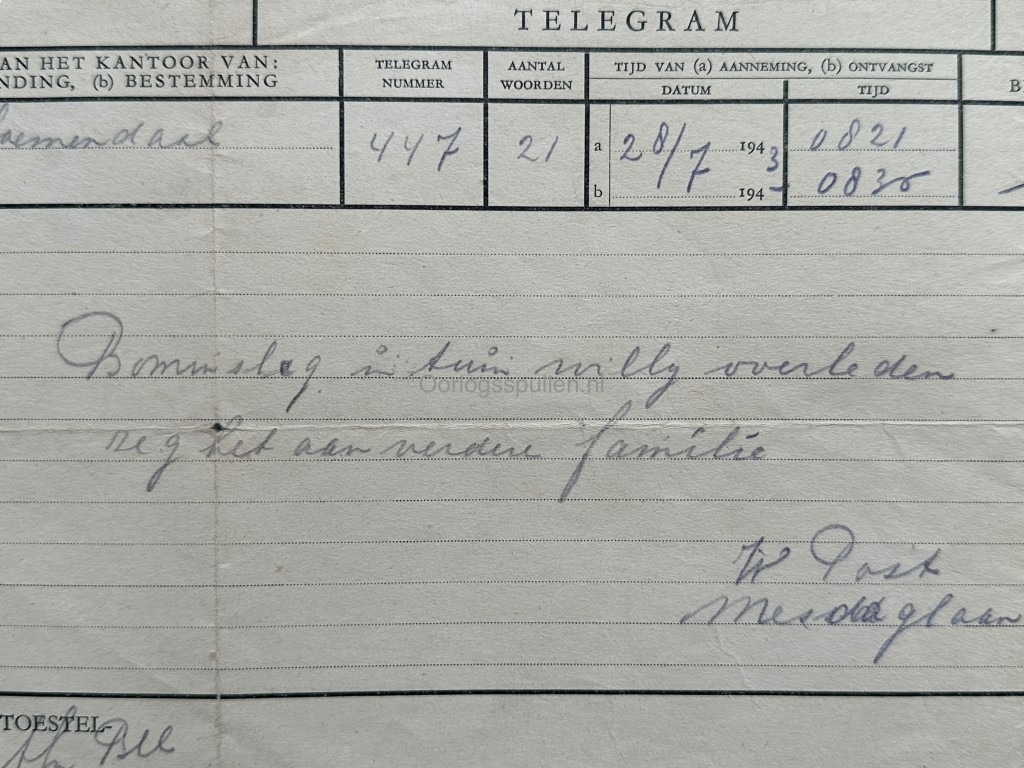 TELEGRAM
AN HET KANTOOR VAN:
NDING, (b) BESTEMMING
TELEGRAM NUMMER
AANTAL WOORDEN
TIJD VAN (a) AANNEMING, (b) ONTVANGST
DATUM
TIJD
B
oemendaal
447
21
a 28/7 1943 0821
b 194 0835
Bominslag in tuin willy overleden
Oorlogsspullen.nl
zeg het aan verdere familie
W Post
Mesdaglaan
TOESTEL-